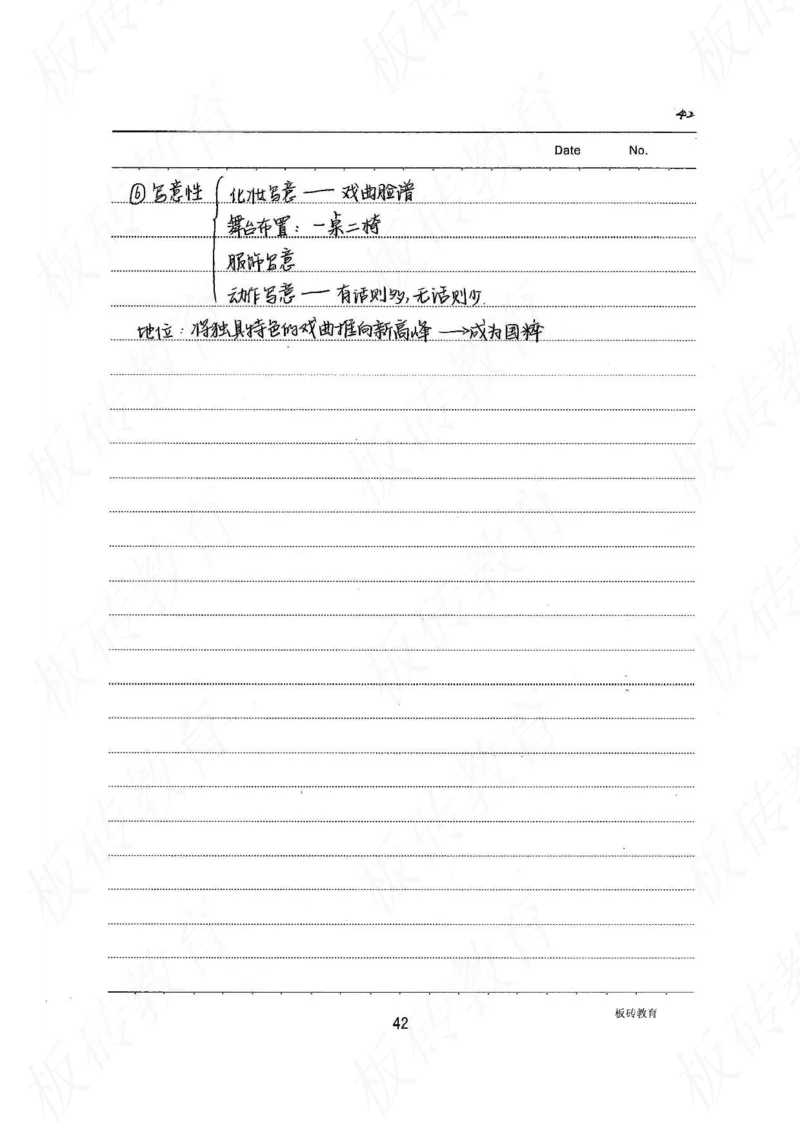 42
Date No.
⑥写意性 { 化妆写意 — 戏曲脸谱
舞台布置：一桌二椅
服饰写意
动作写意 — 有话则多，无话则少
地位：将独具特色的戏曲推向新高峰 → 成为国粹
42
板砖教育